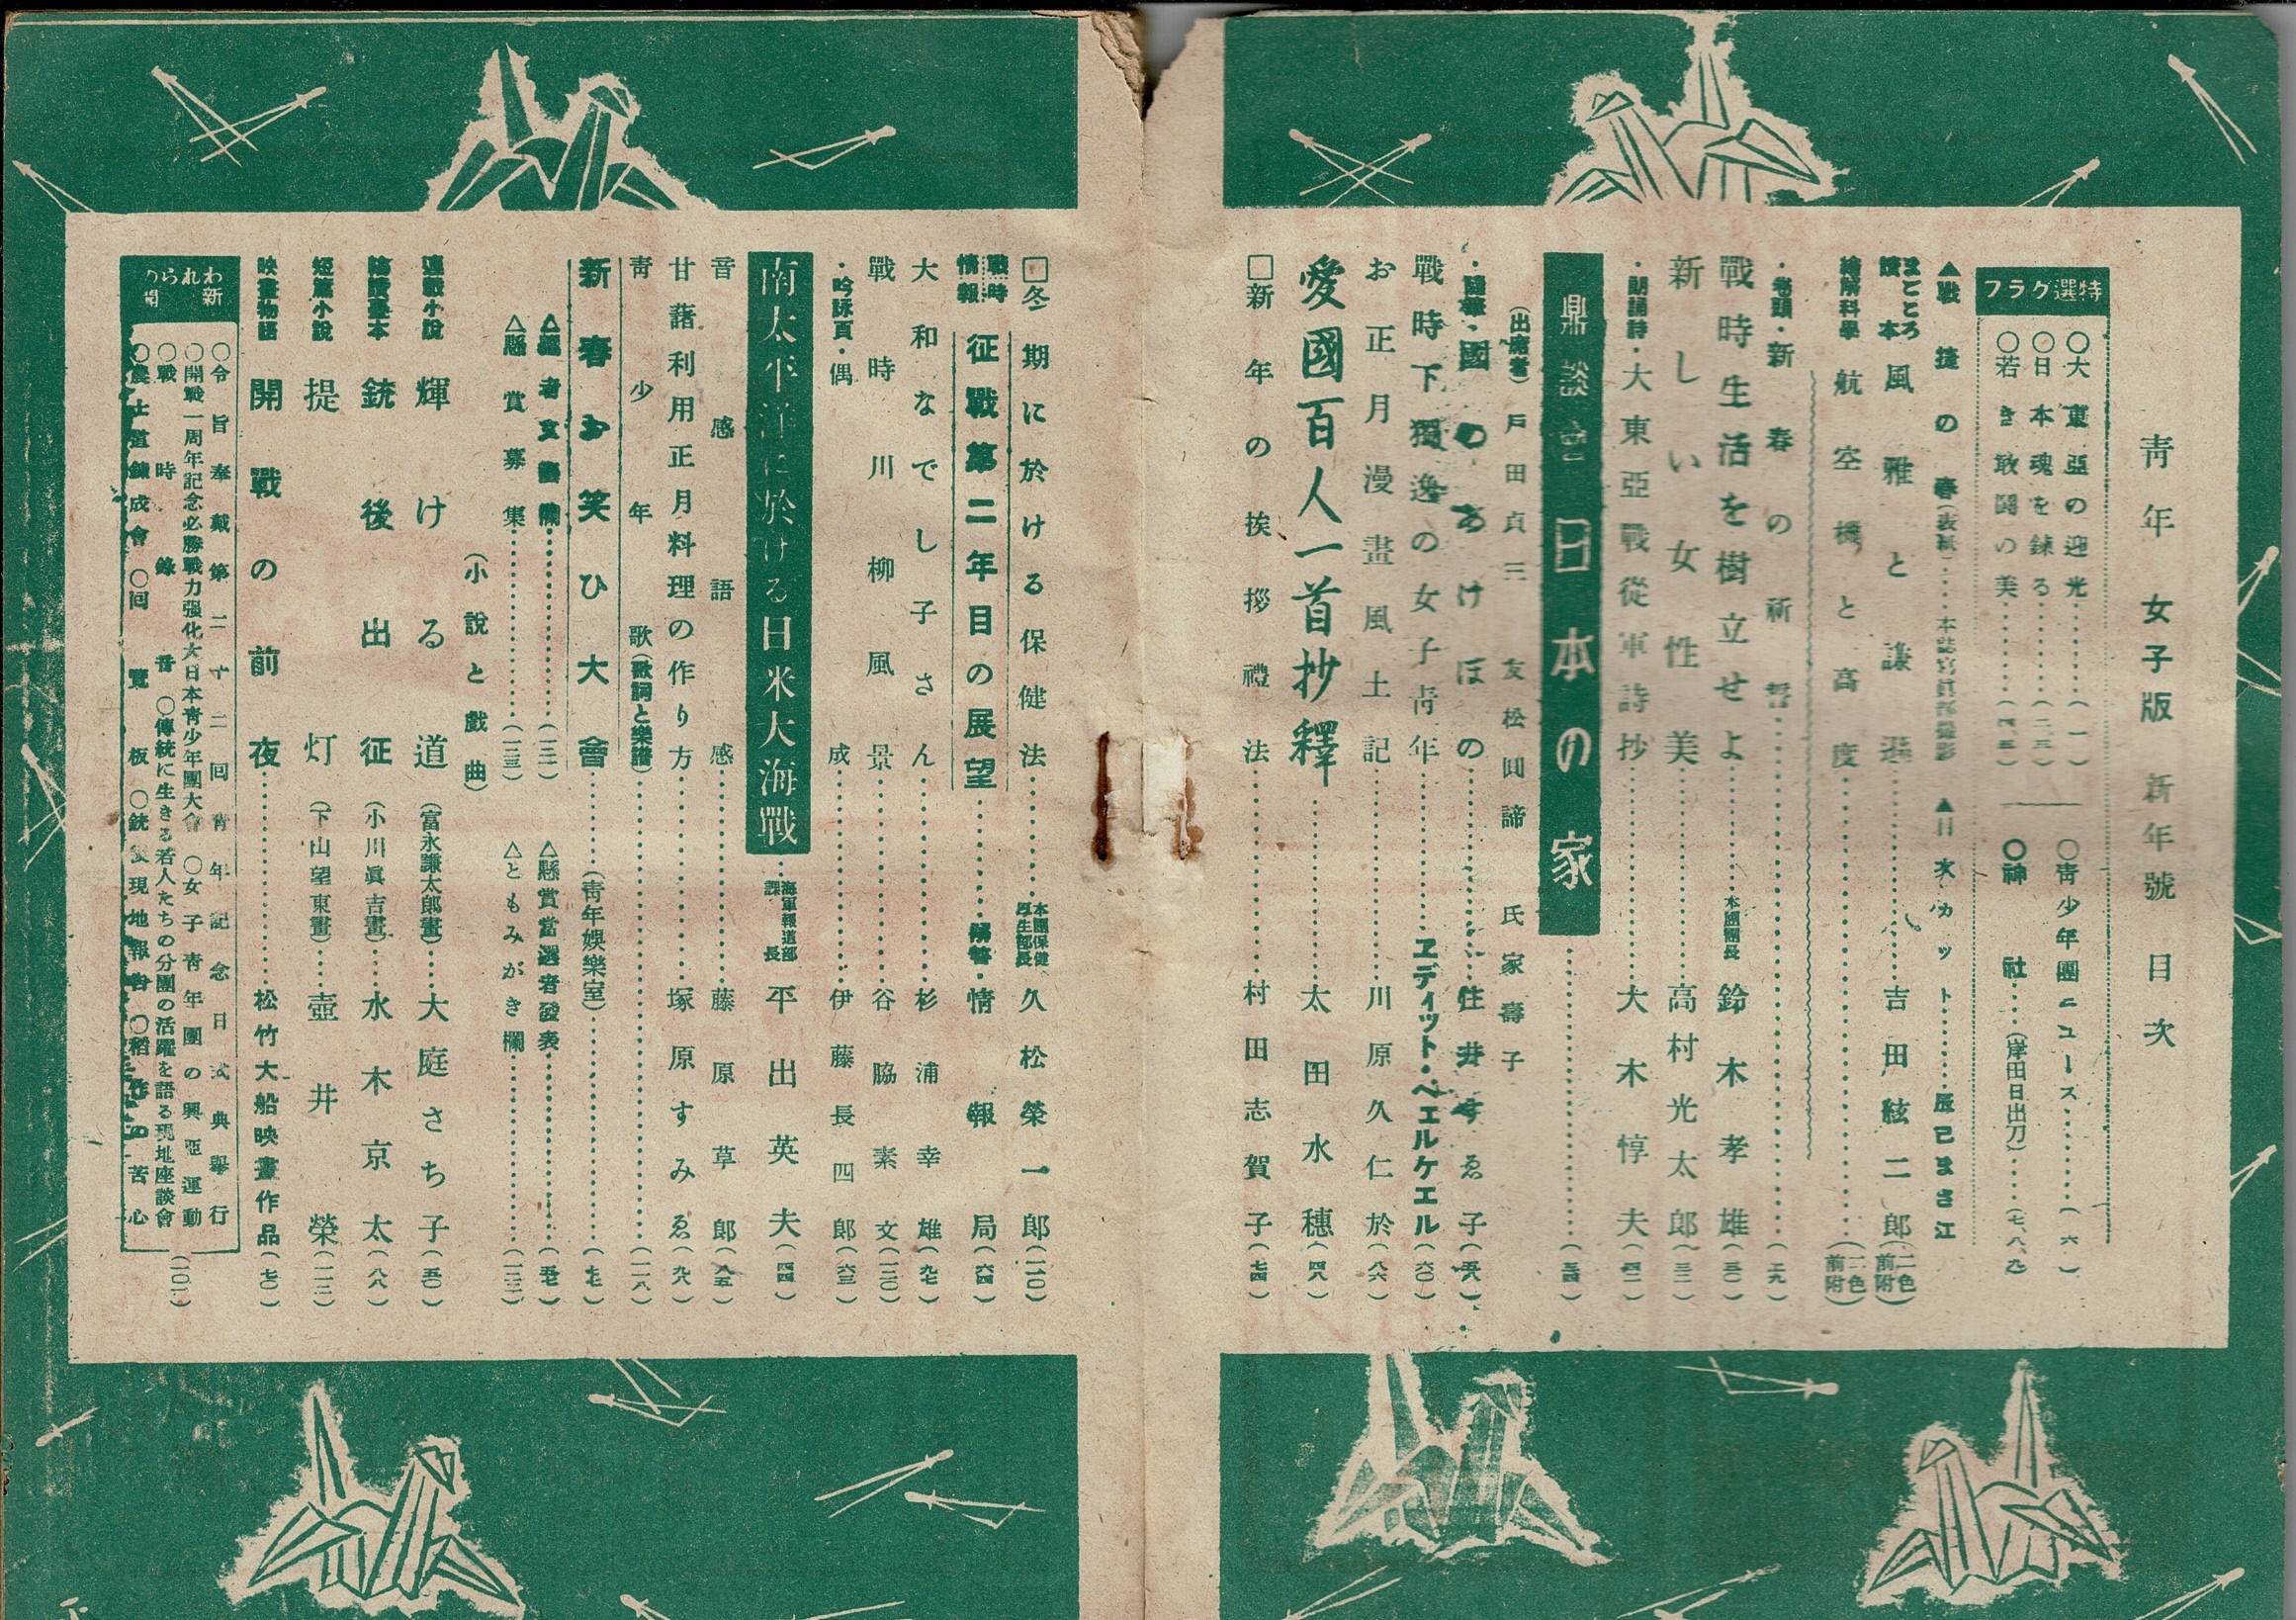 青年 女子版 新年號 目次
特選グラフ
○大東亞の迎光…………(一)
○日本魂を錬る…………(二、三)
○若き敢鬪の美…………(四、五)
○靑少年團ニュース…………(六)
○神社……(岸田日出刀)……(七、八、九)
▲戰捷の春(表紙)……本誌寫眞部撮影
▲目次カット……辰己まさ江
まごころ讀本 風雅と謙遜……吉田絃二郎(二色前附)
繪解科學 航空機と高度…………(二色前附)
・卷頭・新春の祈誓…………(二九)
戰時生活を樹立せよ……本團團長 鈴木孝雄(三〇)
新しい女性美……高村光太郎(三二)
・朗誦詩・大東亞戰從軍詩抄……大木惇夫(四二)
鼎談會 日本の家…………(三四)
(出席者)戸田貞三 友松圓諦 氏家壽子
・隨筆・國のあけぼの……住井すゑ子(五八)
戰時下獨逸の女子靑年……エディット・ベェルケエル(六〇)
お正月漫畫風土記……川原久仁於(八六)
愛國百人一首抄釋……太田水穗(四八)
□新年の挨拶禮法……村田志賀子(七四)
□冬期に於ける保健法……本團保健厚生部長 久松榮一郎(一一〇)
戰時情報 征戰第二年目の展望……解答・情報局(六四)
大和なでし子さん……杉浦幸雄(九七)
戰時川柳風景……谷脇素文(一二〇)
・吟詠頁・偶成……伊藤長四郎(六三)
南太平洋に於ける日米大海戰……海軍報道部課長 平出英夫(四四)
音感語感……藤原草郎(八五)
甘藷利用正月料理の作り方……塚原すみゑ(九八)
靑少年歌(歌詞と樂譜)…………(一一八)
新春お笑ひ大會……(靑年娛樂室)……(七七)
△懸賞當選者發表……(五七)
△懸賞募集……(一三三)
△ともみがき欄……(一二二)
(小説と戲曲)
連載小説 輝ける道(富永謙太郎畫)……大庭さち子(五〇)
銃後出征(小川眞吉畫)……水木京太(八八)
短篇小説 提灯(下山望東畫)……壺井榮(一一二)
映畫物語 開戰の前夜……松竹大船映畫作品(七〇)
われらの新聞
○令旨奉戴第二十二回靑年記念日式典擧行
○開戰一周年記念必勝戰力强化大日本靑少年團大會 ○女子靑年團の興亞運動
○戰時錄音 ○傳統に生きる若人たちの分團の活躍を語る現地座談會
○農士道錬成會 ○回覽板 ○銃後現地報告 ○稻作の苦心
(一〇一)